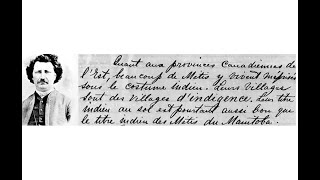 Quant aux provinces Canadiennes de
l'Est, beaucoup de Metis y vivent méprisés
sous le costume indien. Leurs villages
sont des villages d'indigence. Leur titre
indien au sol est pourtant aussi bon que
le titre indien des Metis du Manitoba.